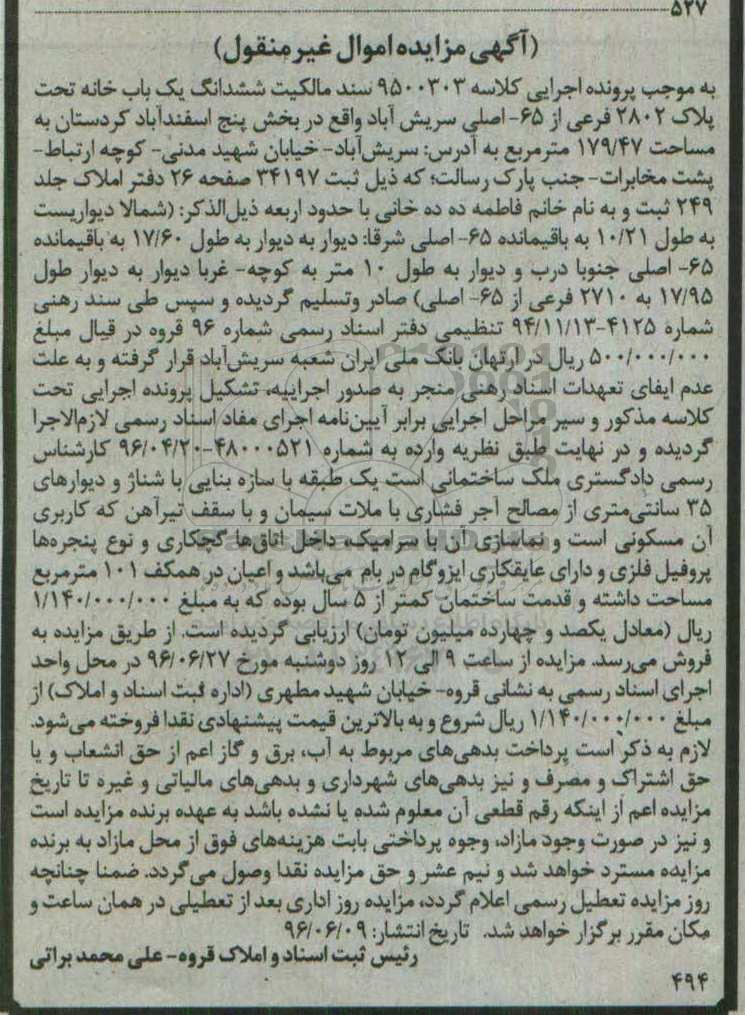 ۵۲۷
(آگهی مزایده اموال غیرمنقول)
به موجب پرونده اجرایی کلاسه ۹۵۰۰۳۰۳ سند مالکیت ششدانگ یک باب خانه تحت
پلاک ۲۸۰۲ فرعی از ۶۵- اصلی سریش آباد واقع در بخش پنج اسفندآباد کردستان به
مساحت ۱۷۹/۴۷ مترمربع به آدرس: سریش‌آباد- خیابان شهید مدنی- کوچه ارتباط-
پشت مخابرات- جنب پارک رسالت؛ که ذیل ثبت ۳۴۱۹۷ صفحه ۲۶ دفتر املاک جلد
۲۴۹ ثبت و به نام خانم فاطمه ده ده خانی با حدود اربعه ذیل‌الذکر: (شمالا دیواریست
به طول ۱۰/۲۱ به باقیمانده ۶۵- اصلی شرقا: دیوار به دیوار به طول ۱۷/۶۰ به باقیمانده
۶۵- اصلی جنوبا درب و دیوار به طول ۱۰ متر به کوچه- غربا دیوار به دیوار طول
۱۷/۹۵ به ۲۷۱۰ فرعی از ۶۵- اصلی) صادر وتسلیم گردیده و سپس طی سند رهنی
شماره ۴۱۲۵-۹۴/۱۱/۱۳ تنظیمی دفتر اسناد رسمی شماره ۹۶ قروه در قبال مبلغ
۵۰۰/۰۰۰/۰۰۰ ریال در ارتهان بانک ملی ایران شعبه سریش‌آباد قرار گرفته و به علت
عدم ایفای تعهدات اسناد رهنی منجر به صدور اجراییه، تشکیل پرونده اجرایی تحت
کلاسه مذکور و سیر مراحل اجرایی برابر آیین‌نامه اجرای مفاد اسناد رسمی لازم‌الاجرا
گردیده و در نهایت طبق نظریه وارده به شماره ۴۸۰۰۰۵۲۱-۹۶/۰۴/۲۰ کارشناس
رسمی دادگستری ملک ساختمانی است یک طبقه با سازه بنایی با شناژ و دیوارهای
۳۵ سانتی‌متری از مصالح آجر فشاری با ملات سیمان و با سقف تیرآهن که کاربری
آن مسکونی است و نماسازی آن با سرامیک، داخل اتاق‌ها گچکاری و نوع پنجره‌ها
پروفیل فلزی و دارای عایقکاری ایزوگام در بام می‌باشد و اعیان در همکف ۱۰۱ مترمربع
مساحت داشته و قدمت ساختمان کمتر از ۵ سال بوده که به مبلغ ۱/۱۴۰/۰۰۰/۰۰۰
ریال (معادل یکصد و چهارده میلیون تومان) ارزیابی گردیده است. از طریق مزایده به
فروش می‌رسد. مزایده از ساعت ۹ الی ۱۲ روز دوشنبه مورخ ۹۶/۰۶/۲۷ در محل واحد
اجرای اسناد رسمی به نشانی قروه- خیابان شهید مطهری (اداره ثبت اسناد و املاک) از
مبلغ ۱/۱۴۰/۰۰۰/۰۰۰ ریال شروع و به بالاترین قیمت پیشنهادی نقدا فروخته می‌شود.
لازم به ذکر است پرداخت بدهی‌های مربوط به آب، برق و گاز اعم از حق انشعاب و یا
حق اشتراک و مصرف و نیز بدهی‌های شهرداری و بدهی‌های مالیاتی و غیره تا تاریخ
مزایده اعم از اینکه رقم قطعی آن معلوم شده یا نشده باشد به عهده برنده مزایده است
و نیز در صورت وجود مازاد، وجوه پرداختی بابت هزینه‌های فوق از محل مازاد به برنده
مزایده مسترد خواهد شد و نیم عشر و حق مزایده نقدا وصول می‌گردد. ضمنا چنانچه
روز مزایده تعطیل رسمی اعلام گردد، مزایده روز اداری بعد از تعطیلی در همان ساعت و
مکان مقرر برگزار خواهد شد. تاریخ انتشار: ۹۶/۰۶/۰۹
رئیس ثبت اسناد و املاک قروه- علی محمد براتی
۴۹۴